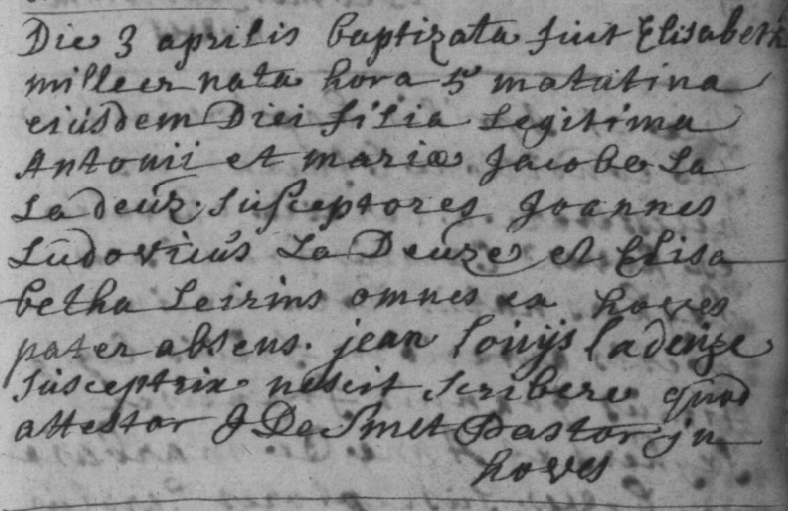 Die 3 aprilis baptizata fuit Elisabeth
milleer nata hora 5 matutina
eiusdem Diei filia Legitima
Antonii et mariæ Jacobe La
La deuz. Susceptores Joannes
Ludovicus La Deuze et Elisa
betha Leirins omnes ex hoves
pater absens. jean louijs ladeuze
Susceptrix nescit Scribere quod
attestor J De Smet Pastor in
hoves